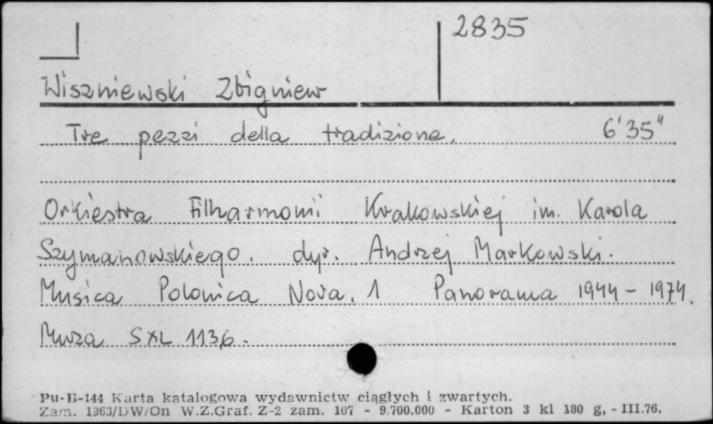 2835
Wiszniewski Zbigniew
Tre pezzi della tradizione. 6'35"
Orkiestra Filharmonii Krakowskiej im. Karola
Szymanowskiego. dyr. Andrzej Markowski.
Musica Polonica Nova. 1 Panorama 1944-1974.
Muza SXL 1136.
Pu-B-144 Karta katalogowa wydawnictw ciągłych i zwartych.
Zam. 1363/DW/On W.Z.Graf. Z-2 zam. 107 - 9.700.000 - Karton 3 kl 180 g, - III.76.